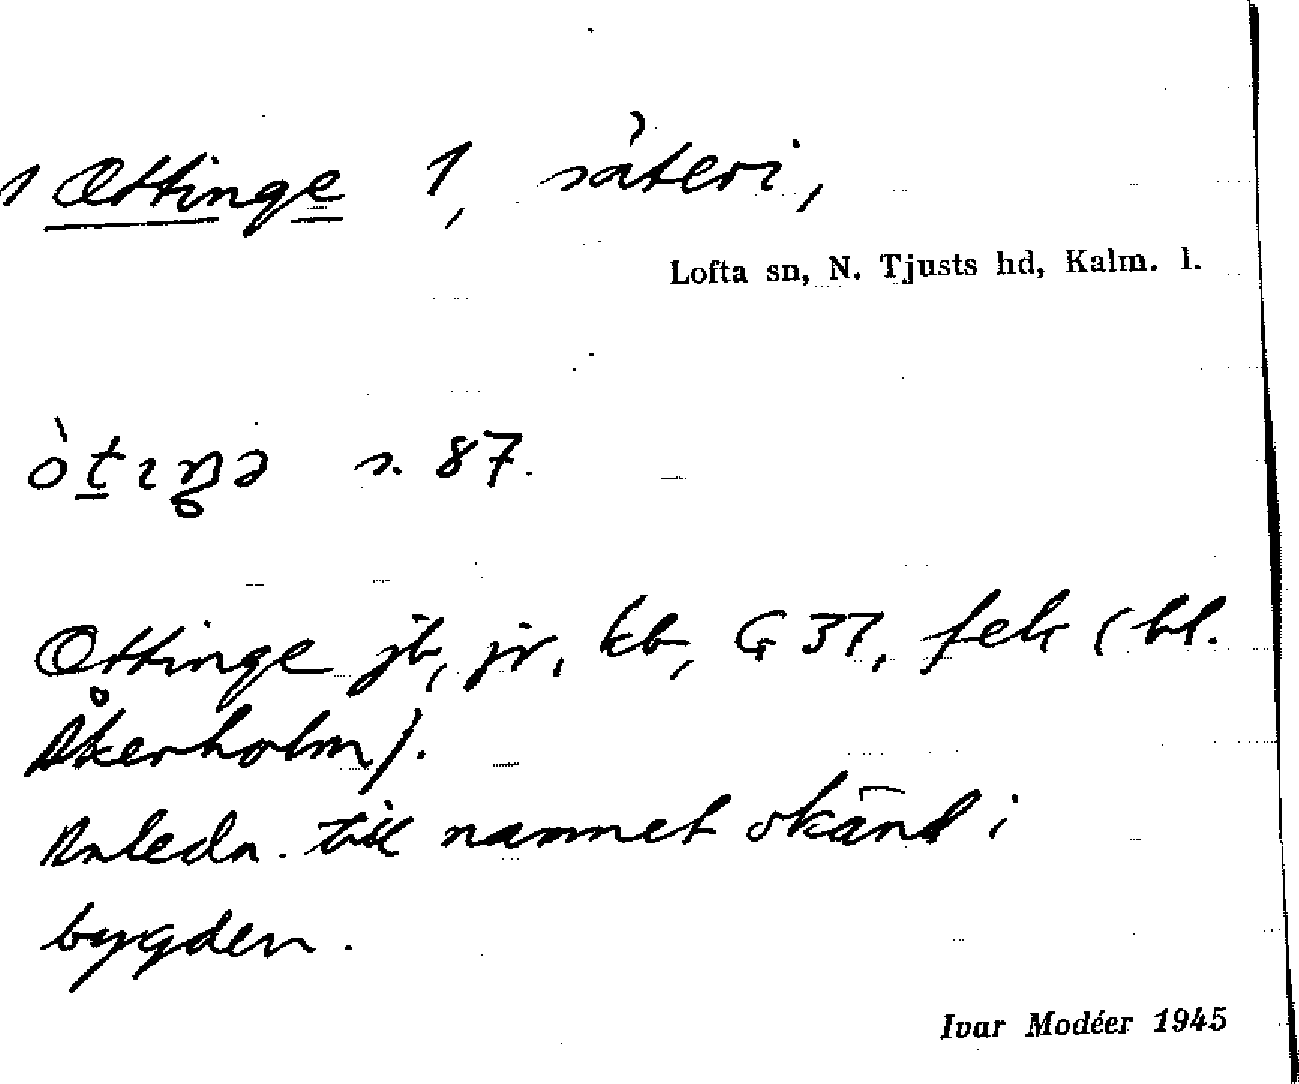 1 Ottinge 1, säteri,
Lofta sn, N. Tjusts hd, Kalm. l.
s. 87.
Ottinge jb, jr, kb, G 37, fek (bl.
Åkerholm).
Anledn. till namnet okänd i
bygden.
Ivar Modéer 1945